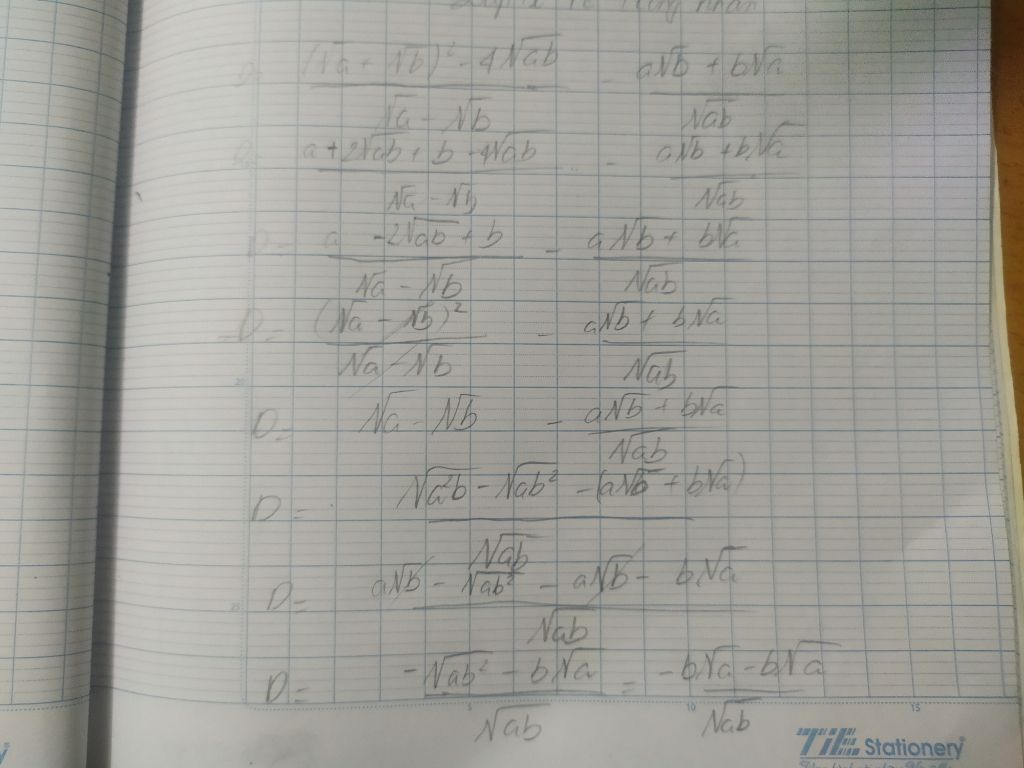 D = ((√a + √b)² - 4√ab) / (√a - √b) - (a√b + b√a) / √ab
D = (a + 2√ab + b - 4√ab) / (√a - √b) - (a√b + b√a) / √ab
D = (a - 2√ab + b) / (√a - √b) - (a√b + b√a) / √ab
D = (√a - √b)² / (√a - √b) - (a√b + b√a) / √ab
D = √a - √b - (a√b + b√a) / √ab
D = (√a²b - √ab² - (a√b + b√a)) / √ab
D = (a√b - √ab² - a√b - b√a) / √ab
D = (-√ab² - b√a) / √ab = (-b√a - b√a) / √ab
5 10 15
TiE Stationery